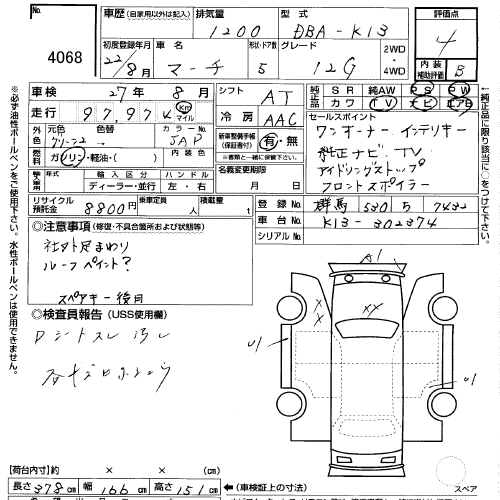 No.
4068
車歴 (自家用以外は記入)
排気量 1200
型式 DBA-K13
評価点 4
初度登録年月 22/8月
車名 マーチ
形状・ドア数 5
グレード 12G
2WD
4WD
内装補助評価 B
車検 27年 8月
シフト AT
純正品 SR 純AW PS PW
カワ TV ナビ エアB
走行 97,97 Km マイル
冷房 AAC
セールスポイント
ワンオーナー インテリキー
純正ナビ TV
アイドリングストップ
フロントスポイラー
外色 元色 グリーン2 色替
カラーNo. JAP
内装色
新車整備手帳(保証書付) 有・無
※書類と一緒に保管下さい
燃料 ガソリン・軽油・( )
名義変更期限
月 日
輸入車 年式 輸入区分 ハンドル
ディーラー・並行 左・右
リサイクル預託金 8800円
乗車定員 人
積載量 t
登録No. 群馬 530 5 7432
車台No. K13-302374
シリアルNo.
◎注意事項 (修復・不具合箇所および状態等)
社外足まわり
ルーフペイント?
スペアキー後日
◎検査員報告 (USS使用欄)
A1
U1
U1
スペア
【荷台内寸】約 × × (cm)
長さ 378 cm 幅 166 cm 高さ 151 cm
(車検証上の寸法)
※必ず油性ボールペンをご使用下さい。水性ボールペンは使用できません。
限り該当に○をつけて下さい